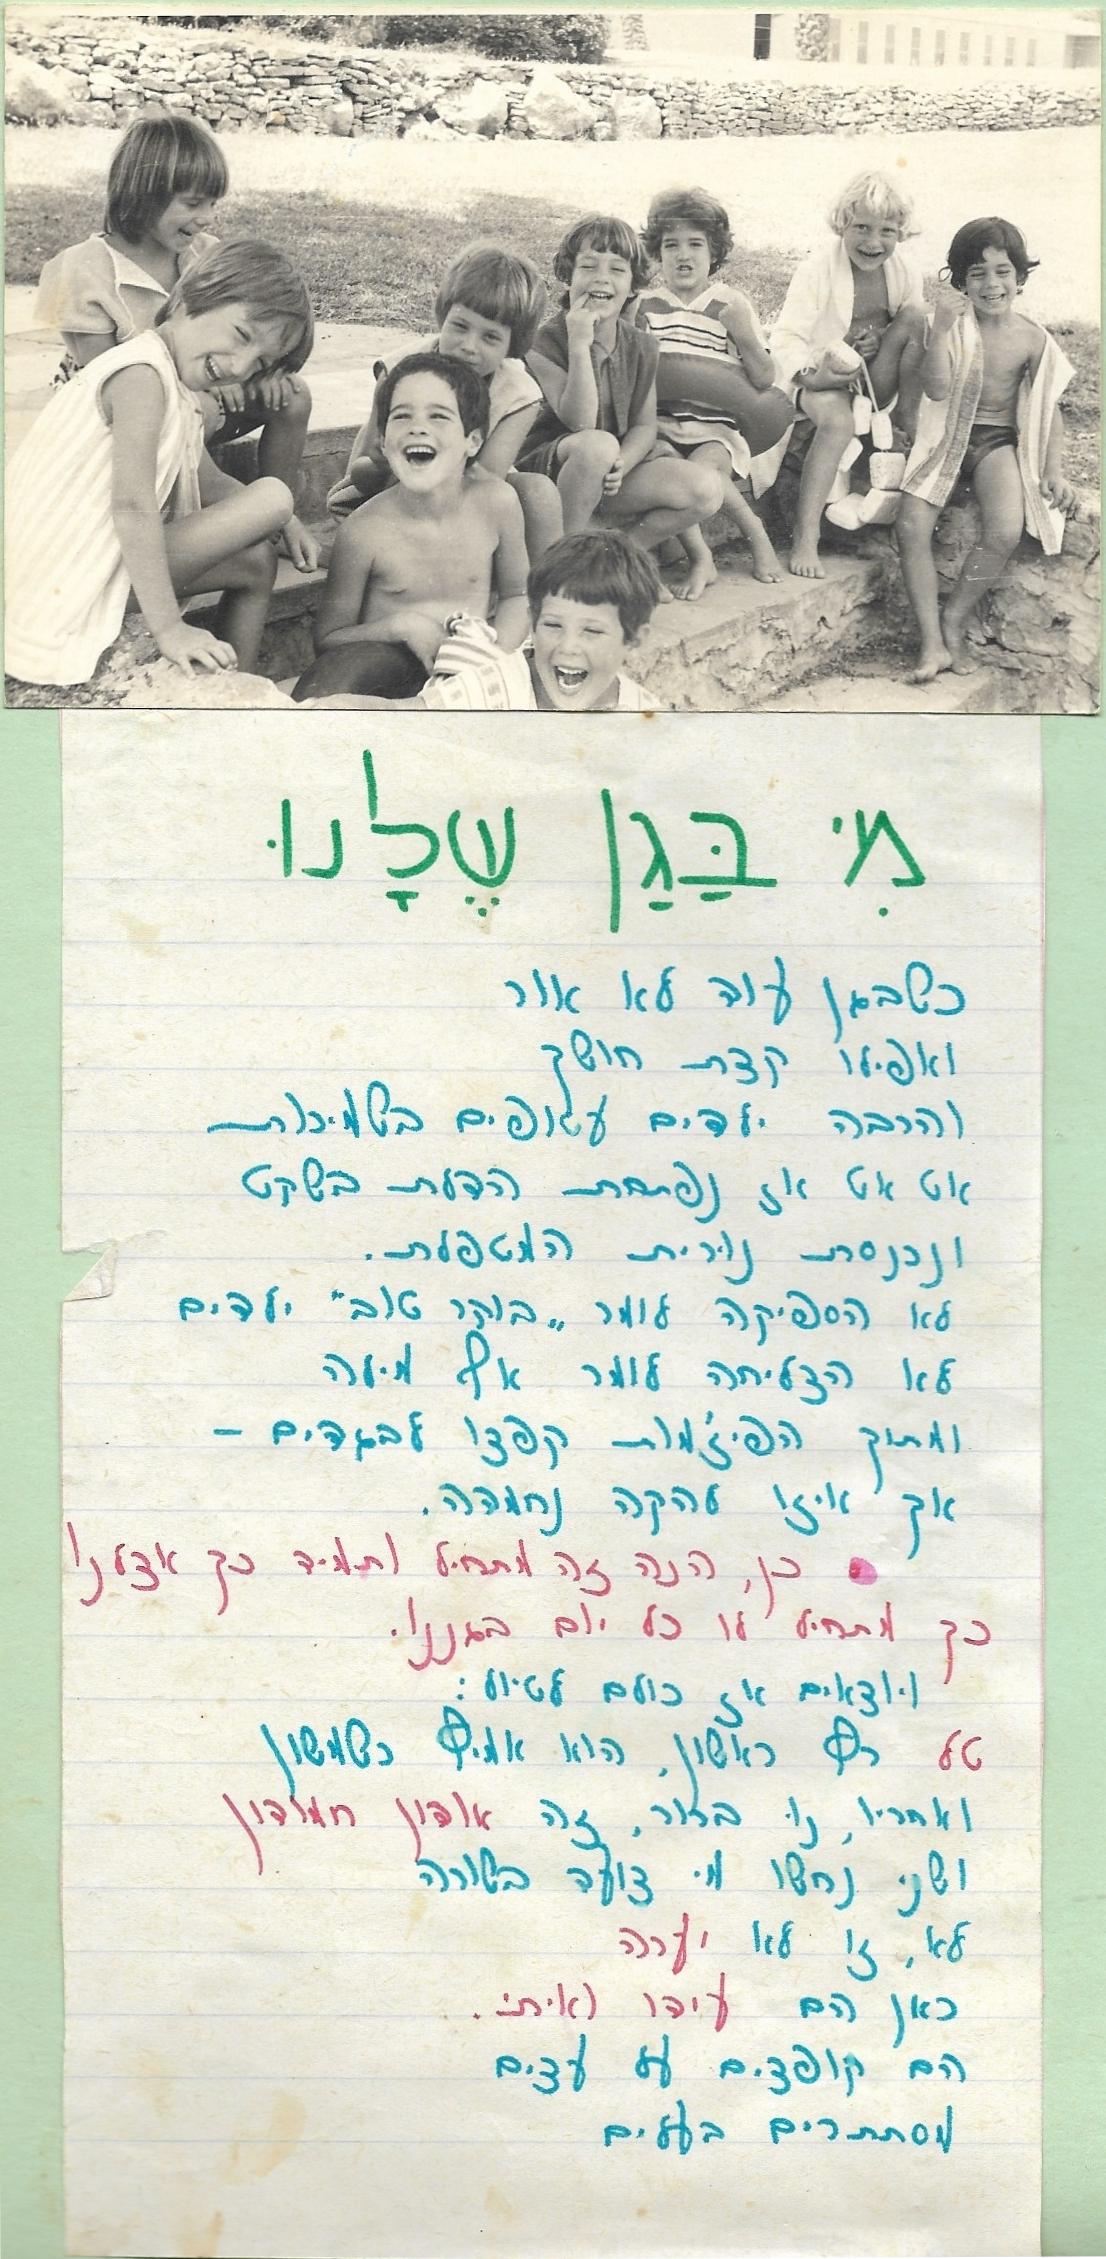 מִי בַּגַן שֶׁלָנוּ
כשבגן עוד לא אור
ואפילו קצת חושך
והרבה ילדים עטופים בשמיכות
אט אט אז נפתחת הדלת בשקט
ונכנסת נורית המטפלת.
לא הספיקה לומר „בוקר טוב" ילדים
לא הצליחה לומר אף מילה
ומתוך הפיז'מות קפצו לבגדים –
אך איזו להקה נחמדה.
כן, הנה זה מתחיל ותמיד כך אצלנו
כך מתחיל לו כל יום בגננו.
ויוצאים אז כולם לטיול:
טל רץ ראשון, הוא אמיץ כשמשון
ואחריו, נו ברור, זה אודון חמודון
ושני נחשו מי צועד בשורה
לא, זו לא יערה
כאן הם עידו ואיתי.
הם קופצים על עצים
מסתתרים בעלים